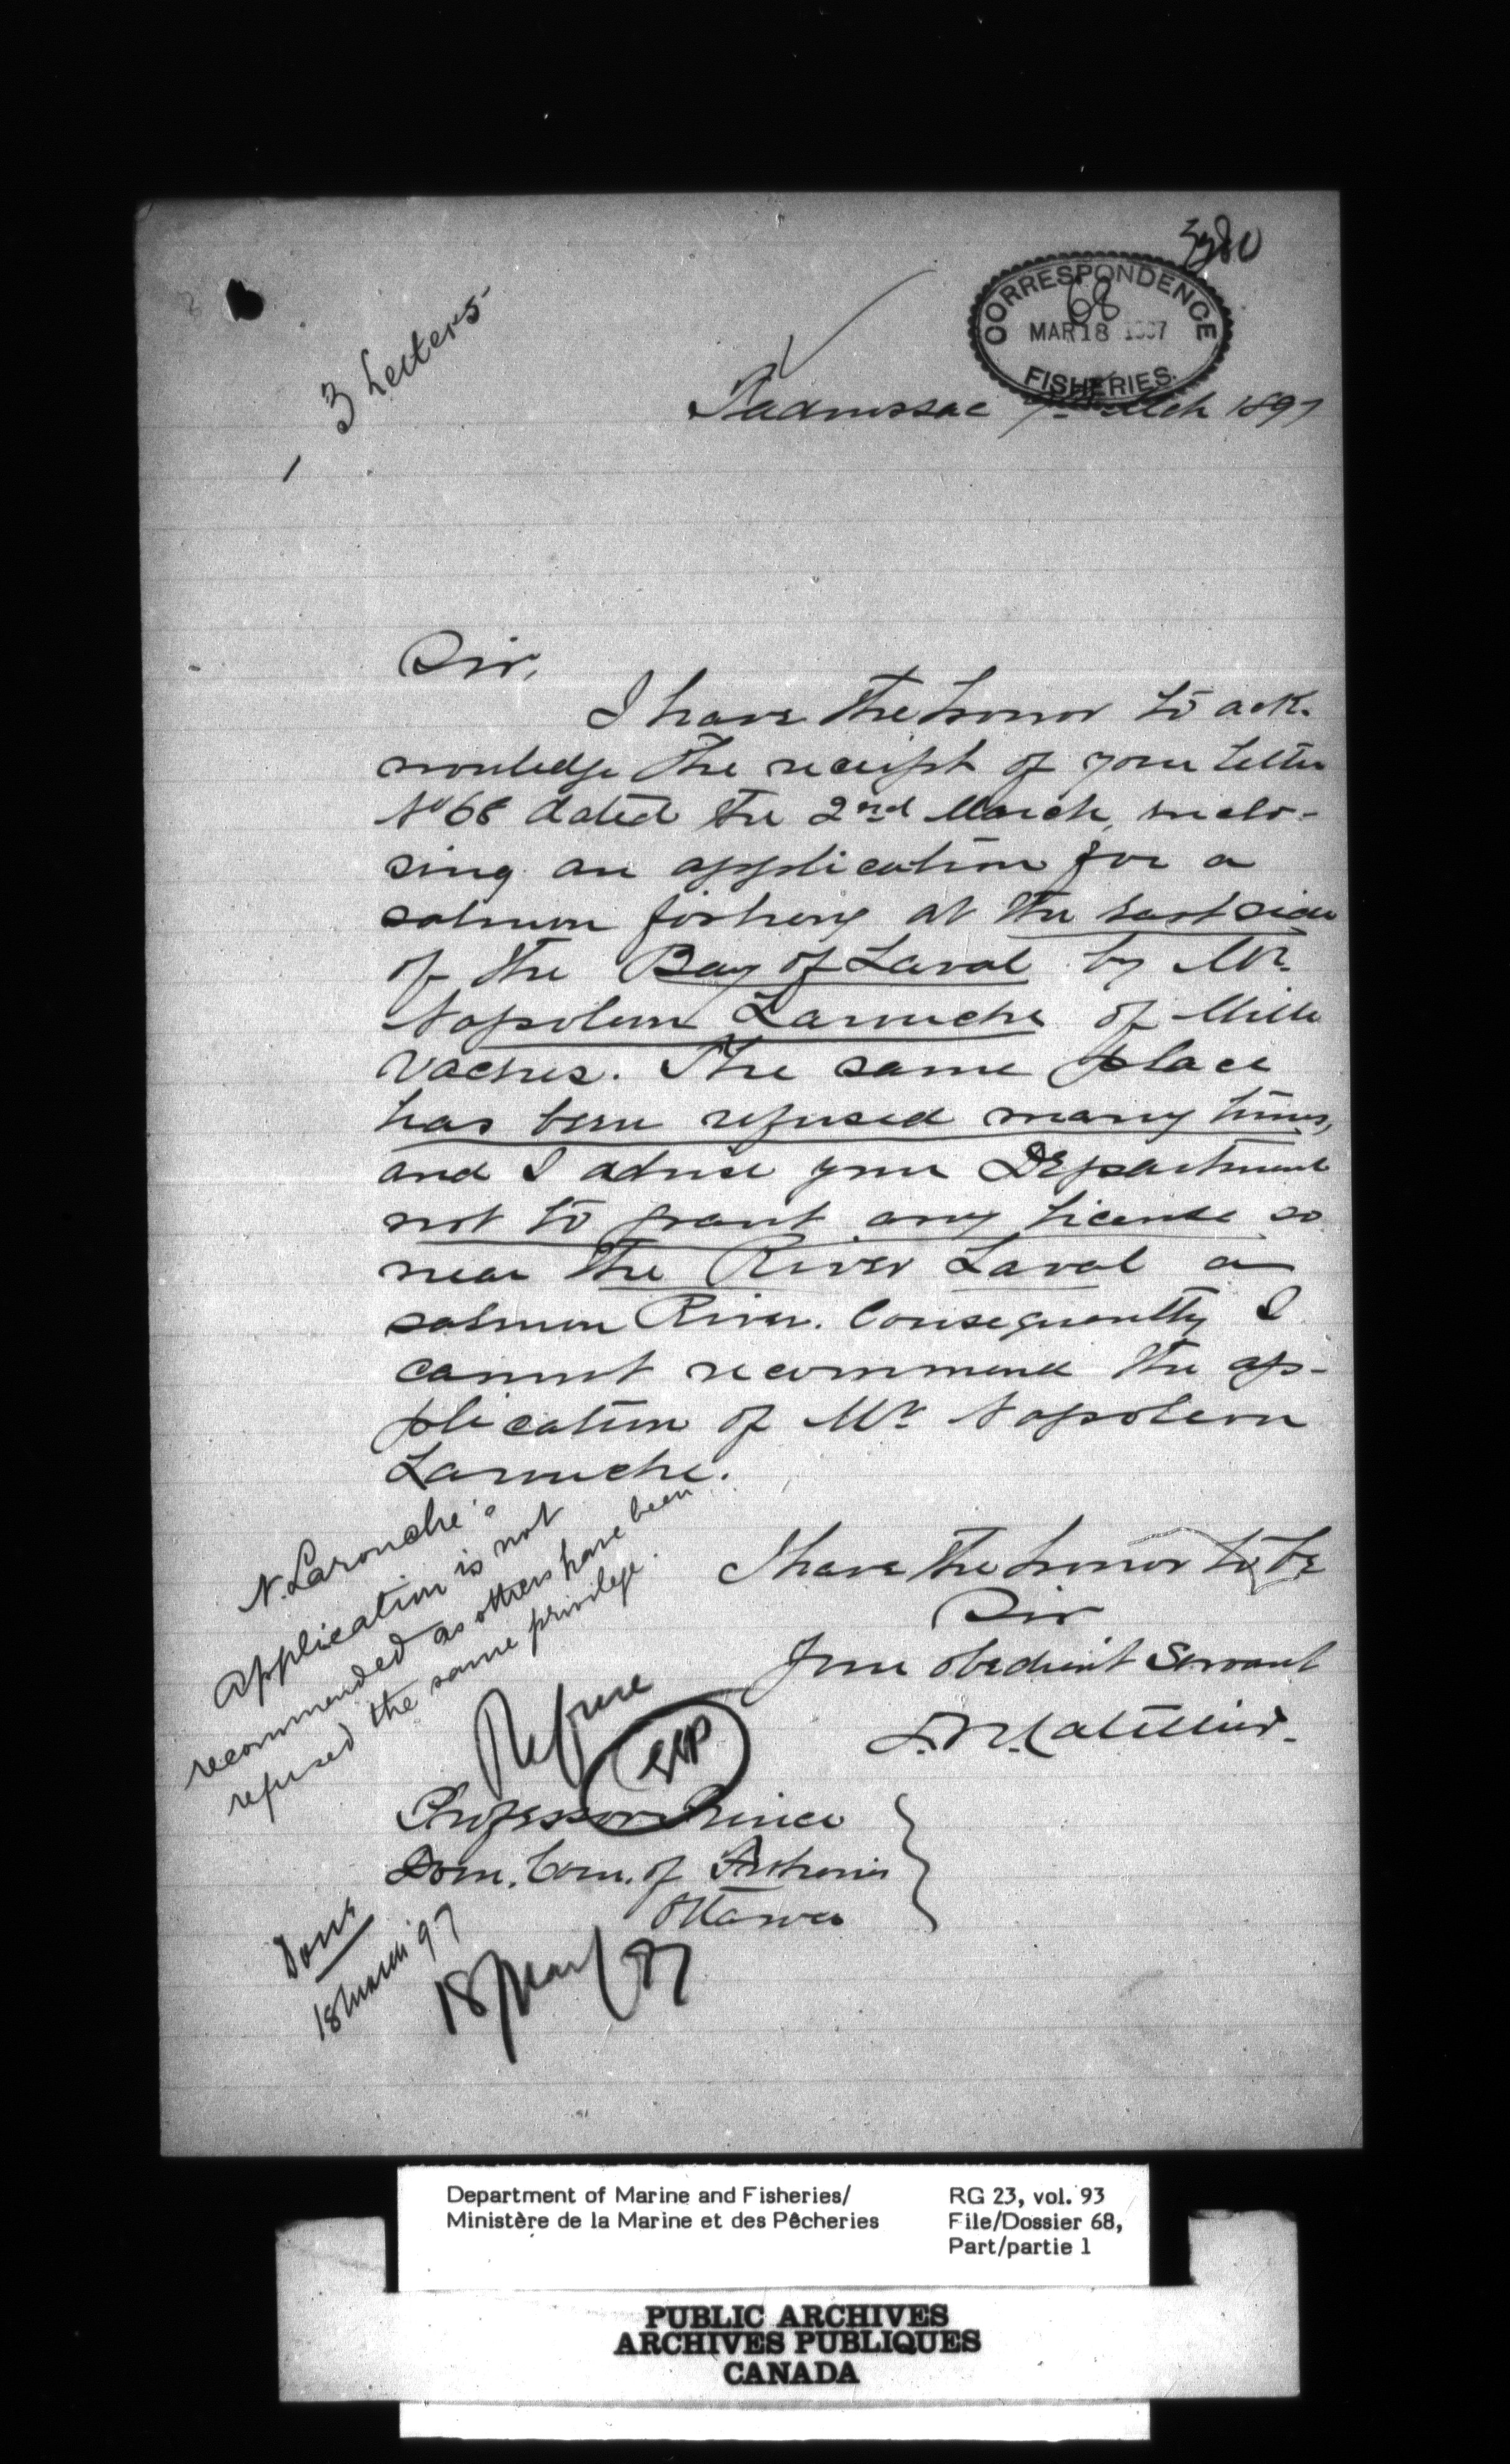 3380
CORRESPONDENCE
68
MAR 18 1897
FISHERIES.
3 Letters
Tadoussac 7th Mch 1897
Sir,
I have the honor to ack-
nowledge the receipt of your letter
No 68 dated the 2nd March, inclo-
sing an application for a
salmon fishery at the East side
of the Bay of Laval by Mr.
Napoleon Larouche of Mille
Vaches. The same place
has been refused many times,
and I advise your Department
not to grant any license so
near the River Laval a
salmon River. Consequently I
cannot recommend the ap-
plication of Mr Napoleon
Larouche.
I have the honor to be
Sir
Your obedient Servant
N. Larouche's
application is not
recommended as others have been
refused the same privilege.
Refuse
EEP
Professor Prince
Dom. Com. of Fisheries
Ottawa
Done
18 March 97
18 Mar/97
Department of Marine and Fisheries/
Ministère de la Marine et des Pêcheries
RG 23, vol. 93
File/Dossier 68,
Part/partie 1
PUBLIC ARCHIVES
ARCHIVES PUBLIQUES
CANADA